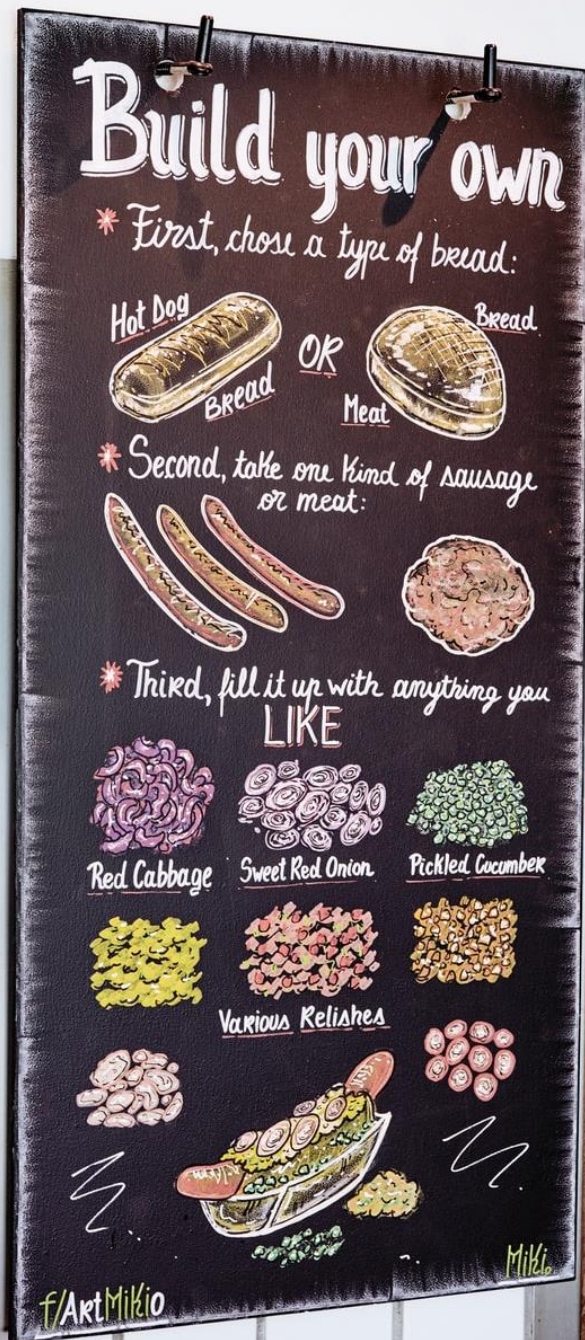 Build your own
* First, chose a type of bread:
Hot Dog
Bread
OR
Bread
Meat
* Second, take one kind of sausage
or meat:
* Third, fill it up with anything you
LIKE
Red Cabbage
Sweet Red Onion
Pickled Cucumber
Various Relishes
Miki.
f/ArtMikio